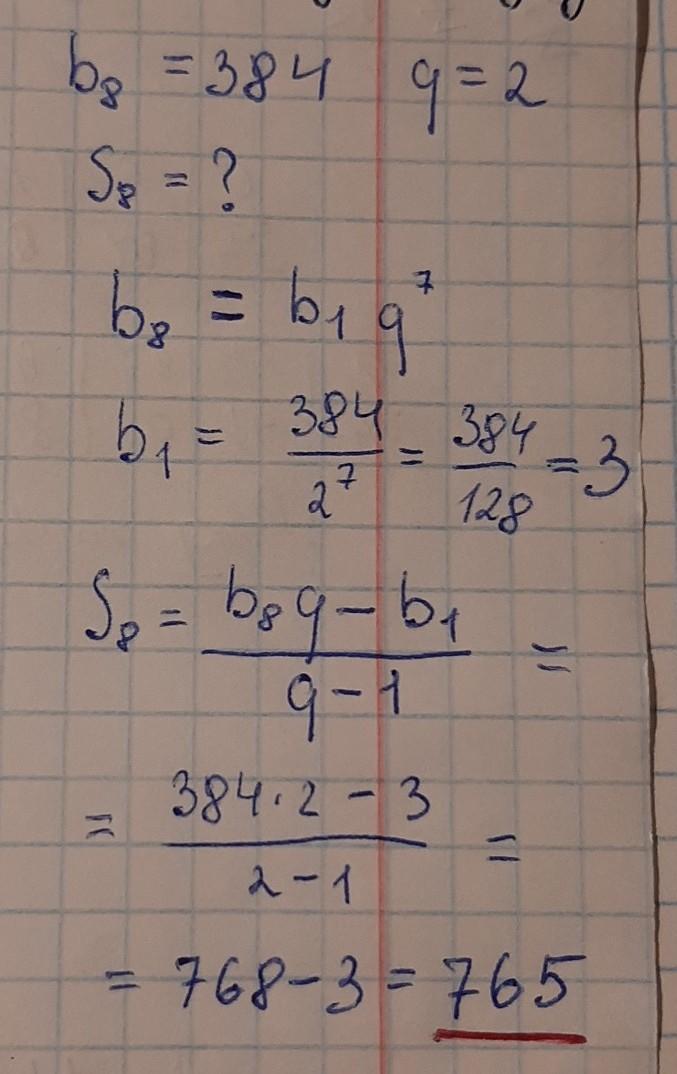 b₈ = 384 q = 2
S₈ = ?
b₈ = b₁ q⁷
b₁ = 384/2⁷ = 384/128 = 3
S₈ = (b₈q − b₁)/(q − 1) =
= (384·2 − 3)/(2 − 1) =
= 768 − 3 = 765